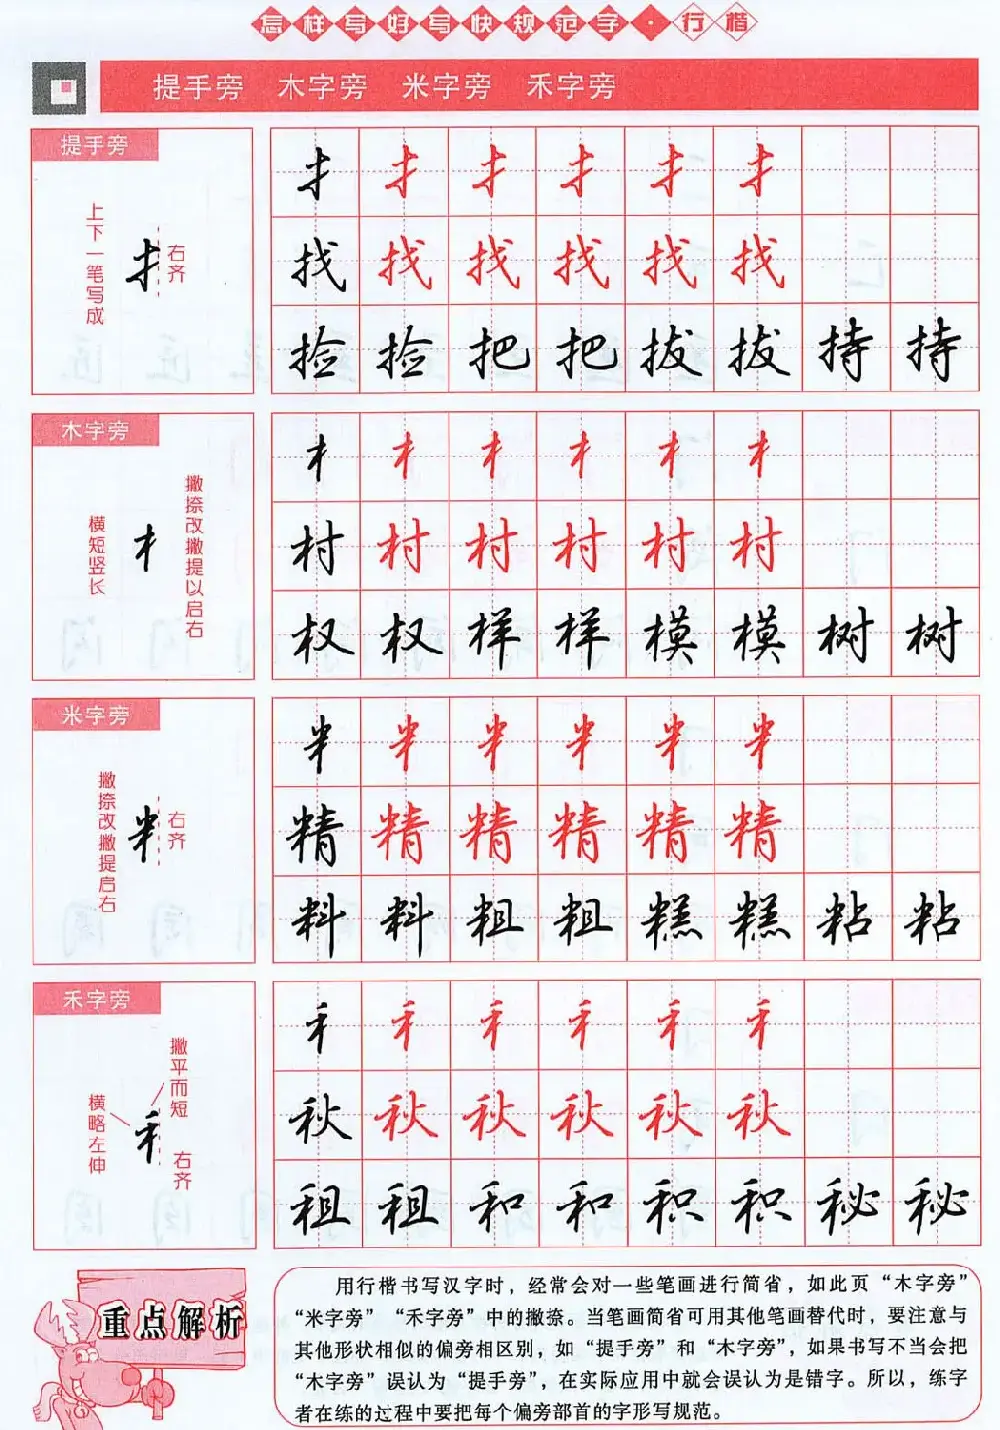 怎样写好写快规范字·行楷
提手旁 木字旁 米字旁 禾字旁
提手旁
上下一笔写成
扌
右齐
扌 扌 扌 扌 扌 扌
找 找 找 找 找 找
捡 捡 把 把 拔 拔 持 持
木字旁
横短竖长
木
撇捺改撇提以启右
木 木 木 木 木 木
村 村 村 村 村 村
权 权 样 样 模 模 树 树
米字旁
撇捺改撇提启右
米
右齐
米 米 米 米 米 米
精 精 精 精 精 精
料 料 粗 粗 糕 糕 粘 粘
禾字旁
撇平而短
横略左伸
禾
右齐
禾 禾 禾 禾 禾 禾
秋 秋 秋 秋 秋 秋
租 租 和 和 积 积 秘 秘
重点解析
用行楷书写汉字时，经常会对一些笔画进行简省，如此页“木字旁”
“米字旁”“禾字旁”中的撇捺。当笔画简省可用其他笔画替代时，要注意与
其他形状相似的偏旁相区别，如“提手旁”和“木字旁”，如果书写不当会把
“木字旁”误认为“提手旁”，在实际应用中就会误认为是错字。所以，练字
者在练的过程中要把每个偏旁部首的字形写规范。